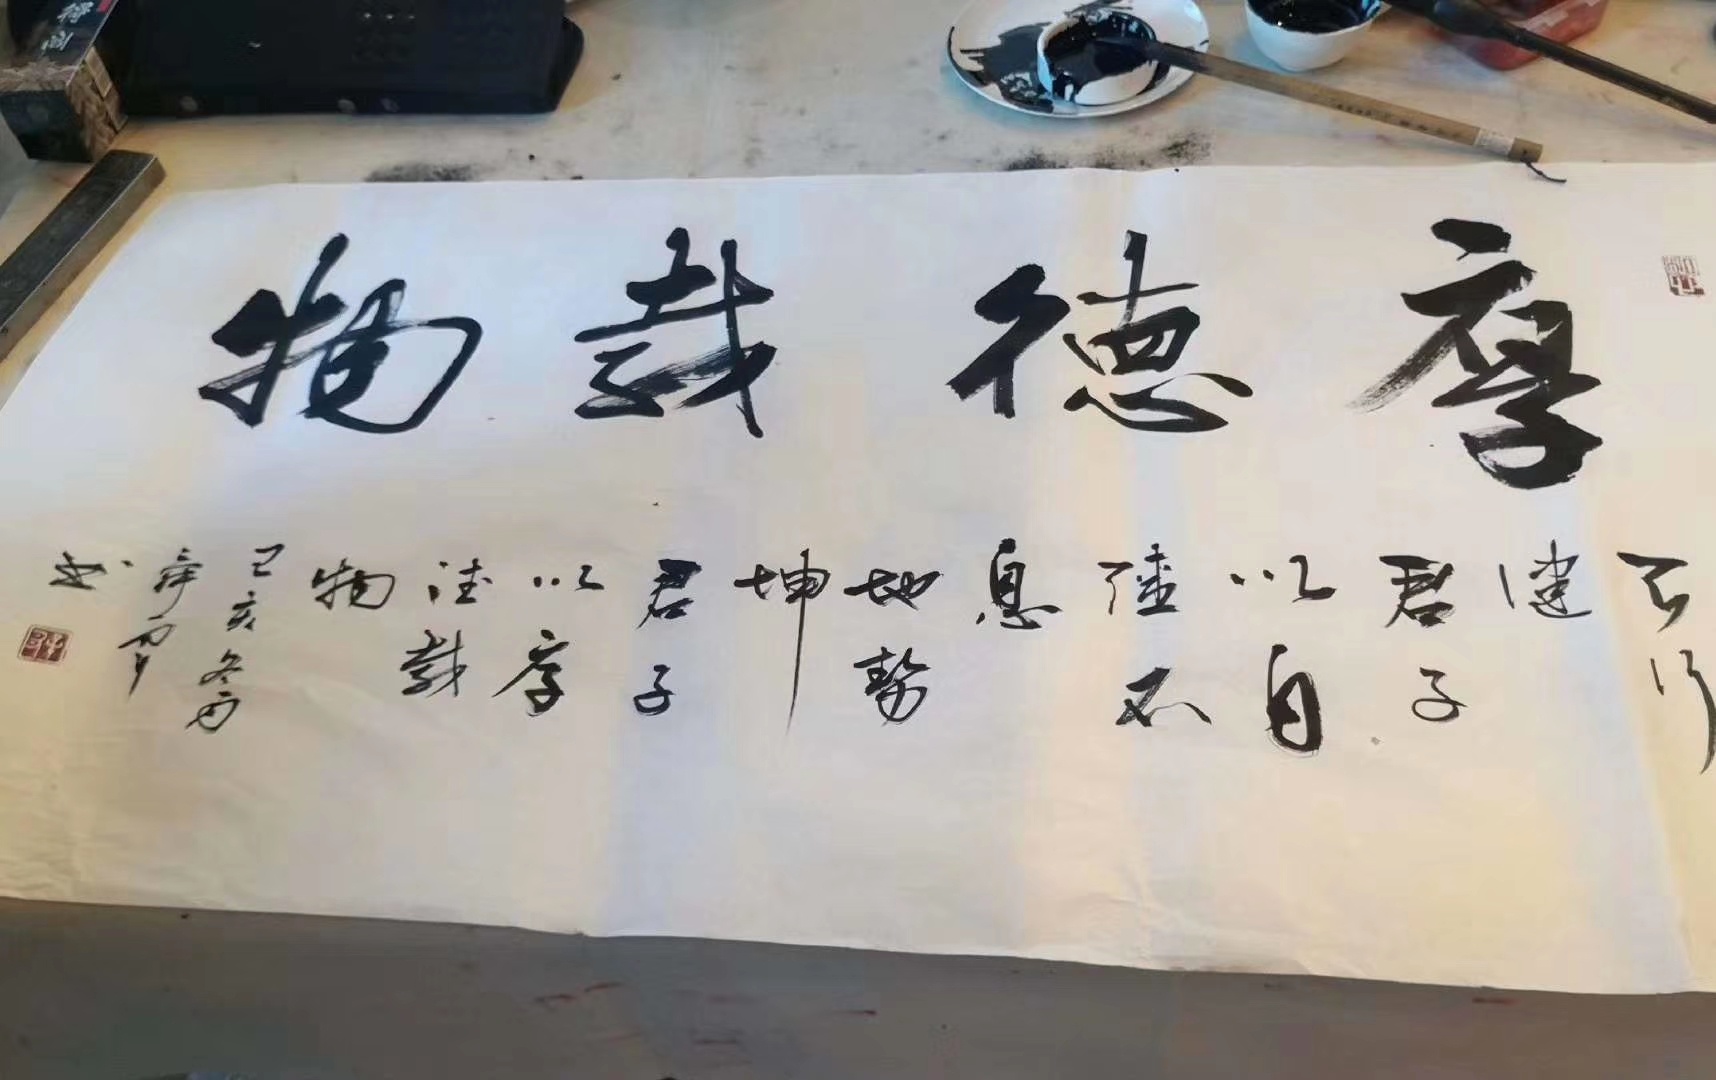 厚德载物
天行
健
君子
以自
强不
息
地势
坤
君子
以厚
德载
物
己亥冬月